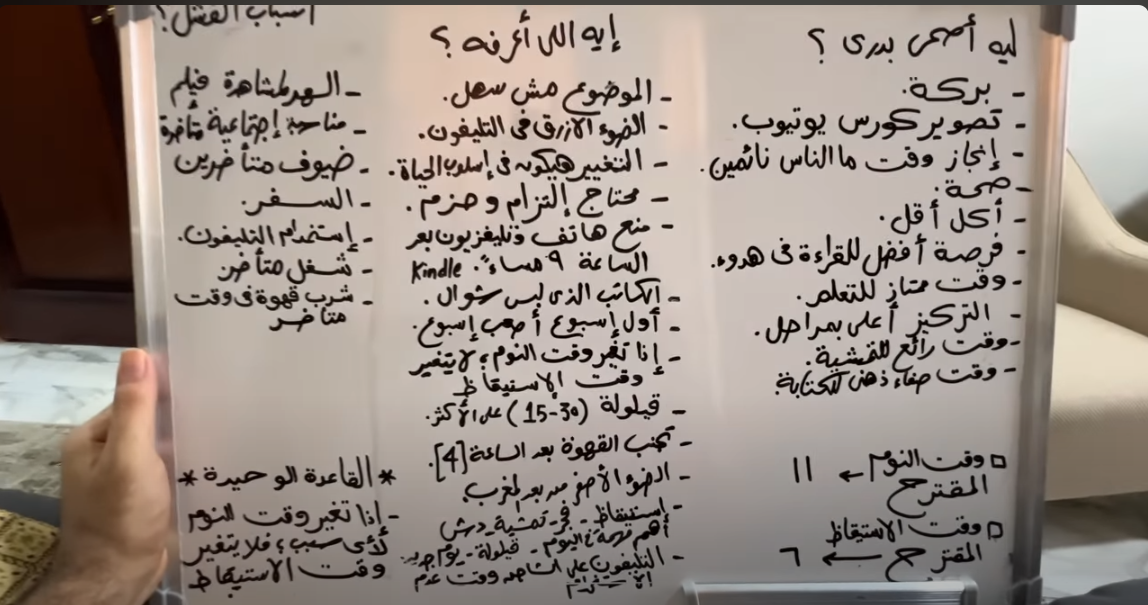 ليه أصحى بدرى ؟
- بركة.
- تصوير كورس يوتيوب.
- إنجاز وقت ما الناس نائمين.
- صحة.
- أكل أقل.
- فرصة أفضل للقراءة فى هدوء.
- وقت ممتاز للتعلم.
- التركيز أعلى بمراحل.
- وقت رائع للتمشية.
- وقت صفاء ذهنى للكتابة.
□ وقت النوم المقترح ← 11
□ وقت الاستيقاظ
المقترح ← ٦
إيه اللى أعرفه ؟
- الموضوع مش سهل.
- الضوء الأزرق فى التليفون.
- التغيير هيكون فى إسلوب الحياة.
- محتاج إلتزام وحزم.
- منع هاتف وتليفزيون بعد
الساعة ٩ مساءً. Kindle
- الكاتب الذى لبس شوال.
- أول إسبوع أصعب إسبوع.
- إذا تغير وقت النوم؛ لا يتغير
وقت الإستيقاظ
- قيلولة (30-15) على الأكثر.
- تجنب القهوة بعد الساعة [4].
- الضوء الأصفر من بعد المغرب.
- إستيقاظ - تمشية - دش
أهم مهمة فى اليوم - قيلولة - يوم جديد.
- التليفون على الشاحن وقت عدم
الإستخدام
أسباب الفشل ؟
- السهر لمشاهدة فيلم
- مناسبة إجتماعية متأخرة
- ضيوف متأخرين
- السفر.
- إستخدام التليفون.
- شغل متأخر.
- شرب قهوة فى وقت
متأخر
* القاعدة الوحيدة *
- إذا تغير وقت النوم
لأى سبب؛ فلا يتغير
وقت الاستيقاظ